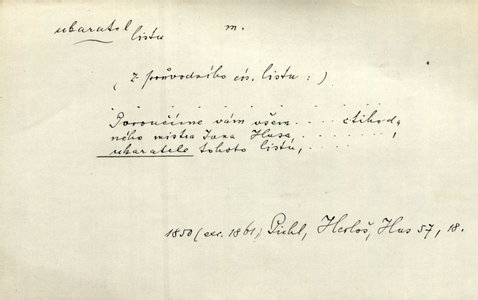 ukazatel listu m.
( z průvodního cís. listu : )
. . . . . . . . . . . . . . .
Poroučíme vám všem . . . . ctihod,
ného mistra Jana Husa, . . . . . . . ,
ukazatele tohoto listu, . . . . .
1850 (exc. 1861,) Pichl, Herloš, Hus 57, 18.